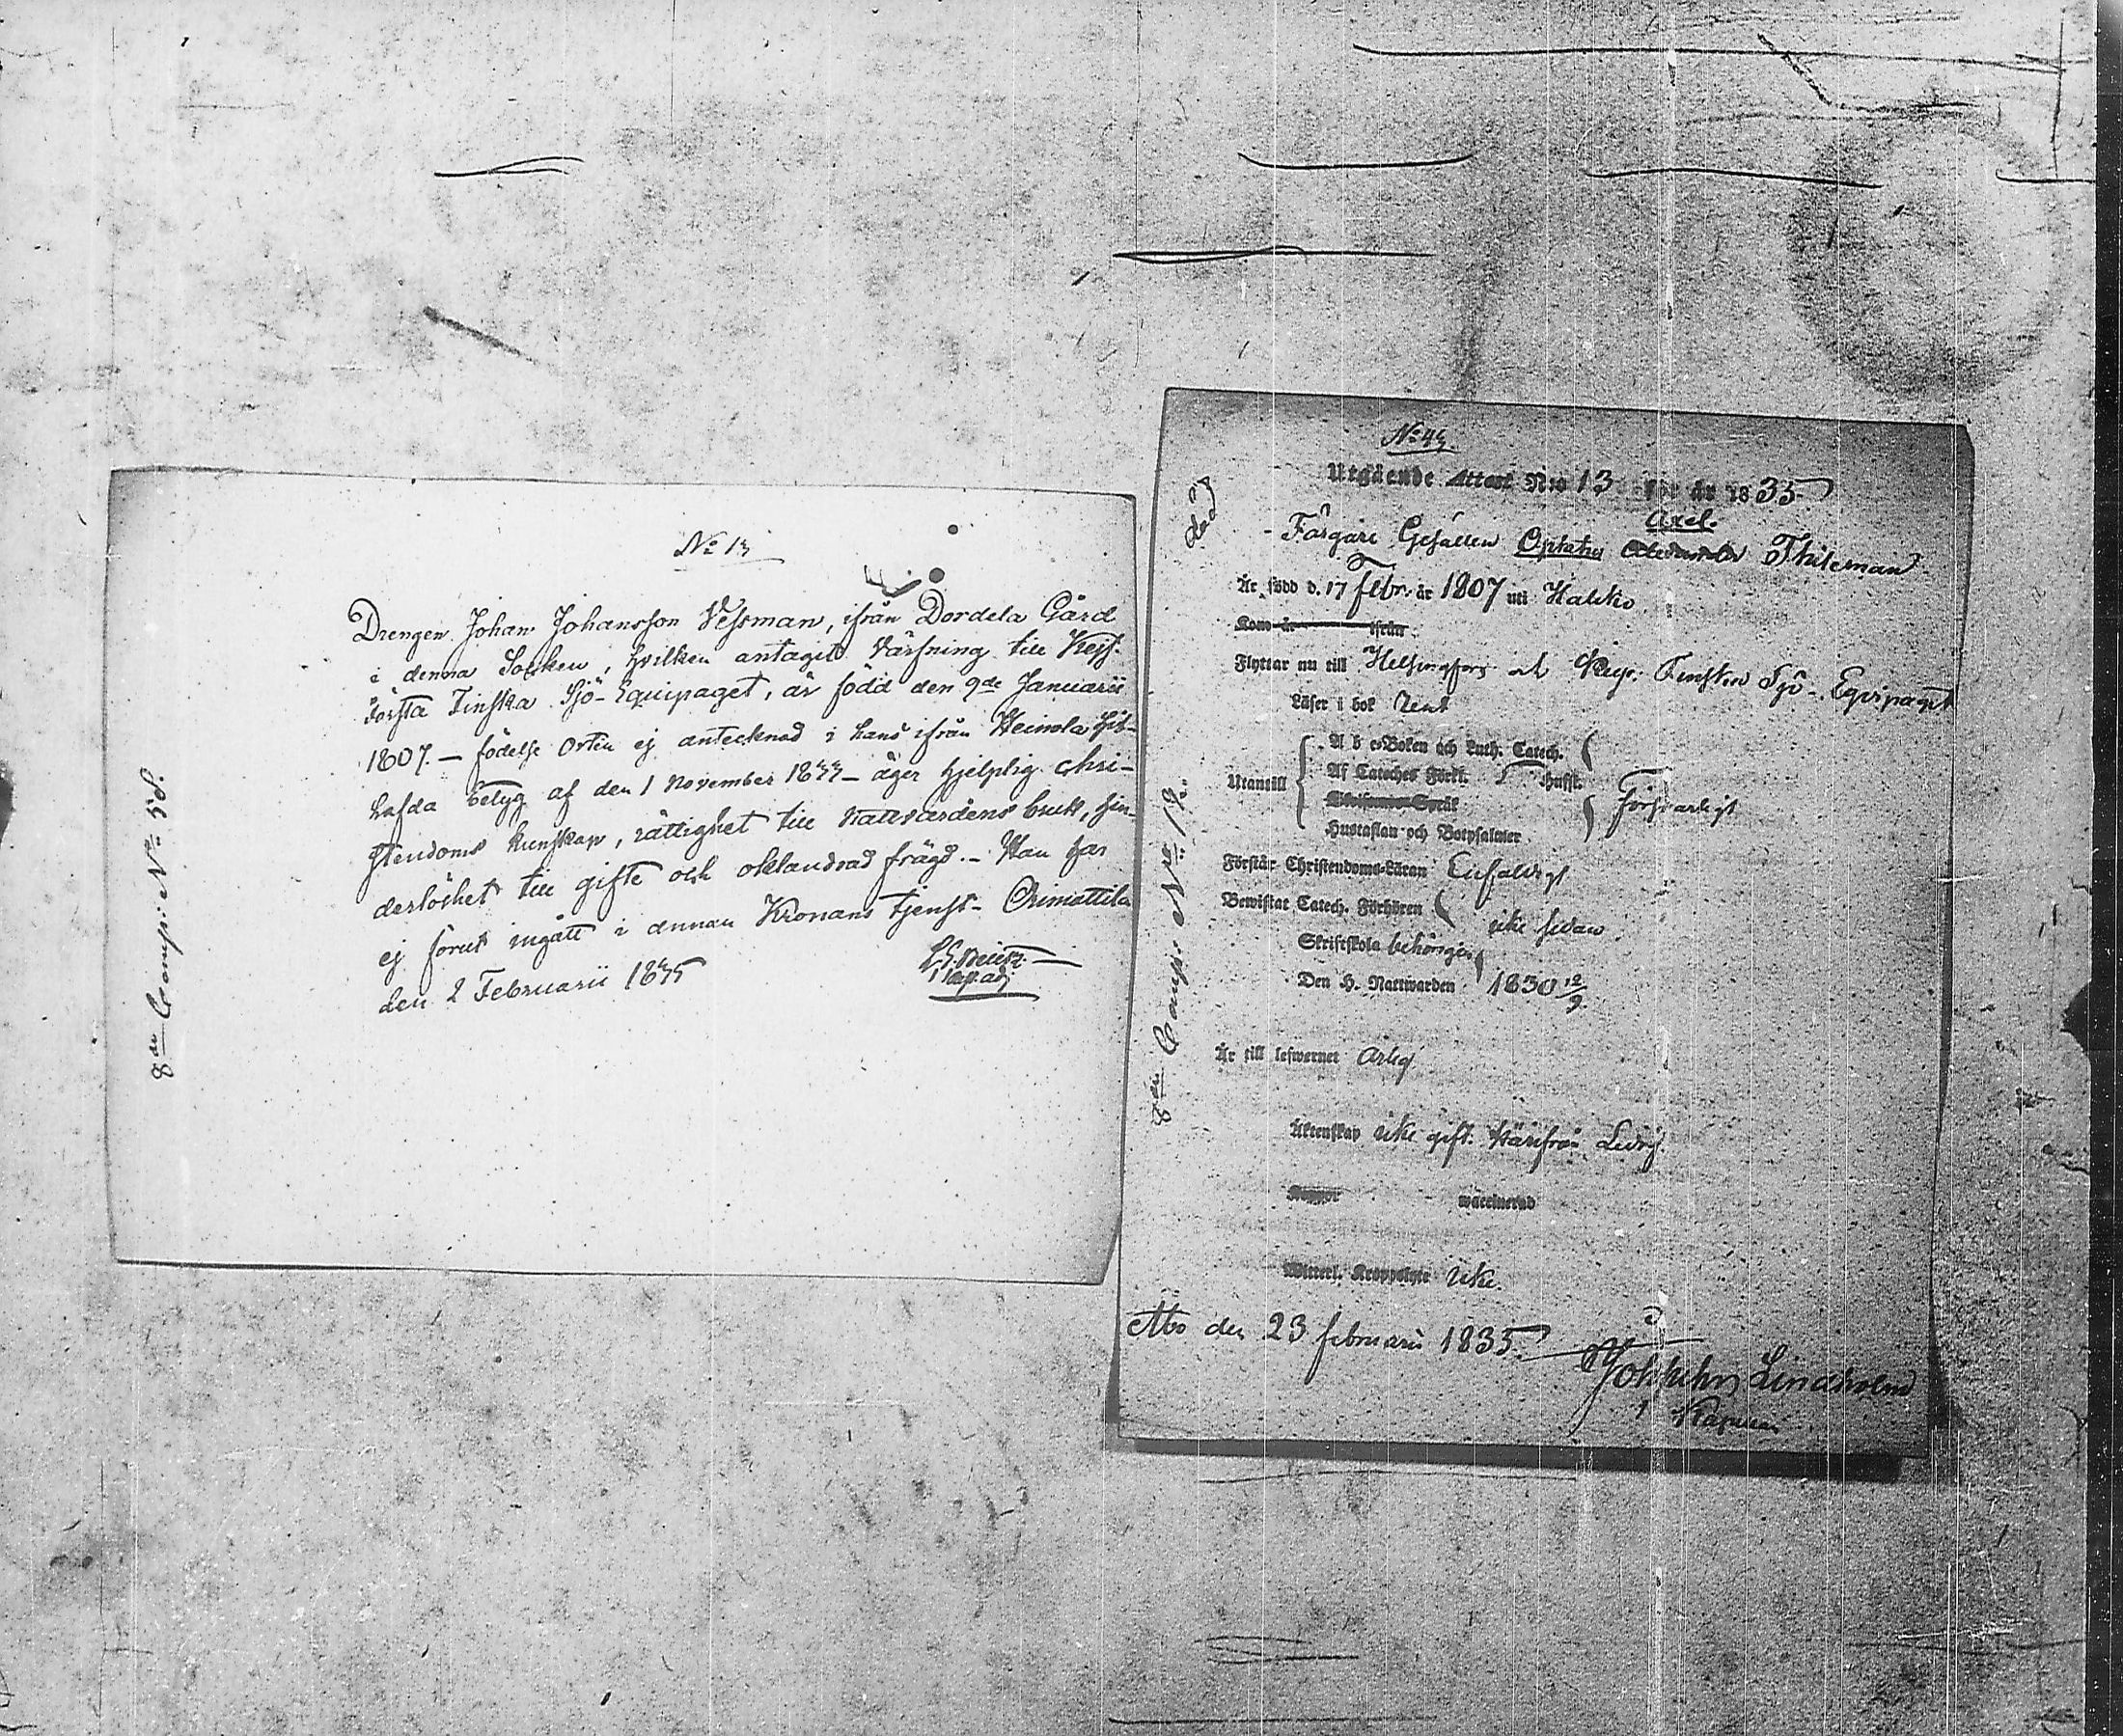 No 13
Drengen Johan Johansson Vessman, ifrån Dordela Gård
i denna Socken, hvilken antagit Värfning till Kejs.
Första Finska Sjö-Equipaget, är född den 9de Januarii
1807. — födelse orten ej antecknad i hans ifrån Heinola hit-
hafda betyg af den 1 November 1833 — äger hjelplig chri-
stendoms kunskap, rättighet till nattvardens bruk, hin-
derlöshet till gifte och oklandrad frägd. — Han har
ej förut ingått i annan Kronans tjenst — Orimattila
den 2 Februarii 1835
8de Comp: No 58.
No 43
Utgående Attest Nro 13 för år 1835
Axel.
Färgare Gesällen Thileman
Är född d. 17 Febr. år 1807 uti Halikko
Kom år ifrån
Flyttar nu till Helsingfors och Kejs. Finska Sjö-Equipaget
Läser i bok rent
Utantill
A b c-Boken och Luth. Catech.
Af Cateches Förkl. Husst.
Hustaflan och Botpsalmer
Försvarligt
Förstår Christendoms-Läran Enfaldigt
Bewistat Catech. Förhören icke sedan
Skriftskola behörigen
Den H. Nattwarden 1830 12/9.
Är till lefwernet ärlig
Äktenskap icke gift. Härifrån Ledig.
Koppor waccinerad
Witterl. Kroppslyte icke.
Åbo den 23 februarii 1835.
Lindholm
8de Comp: Nro 12.